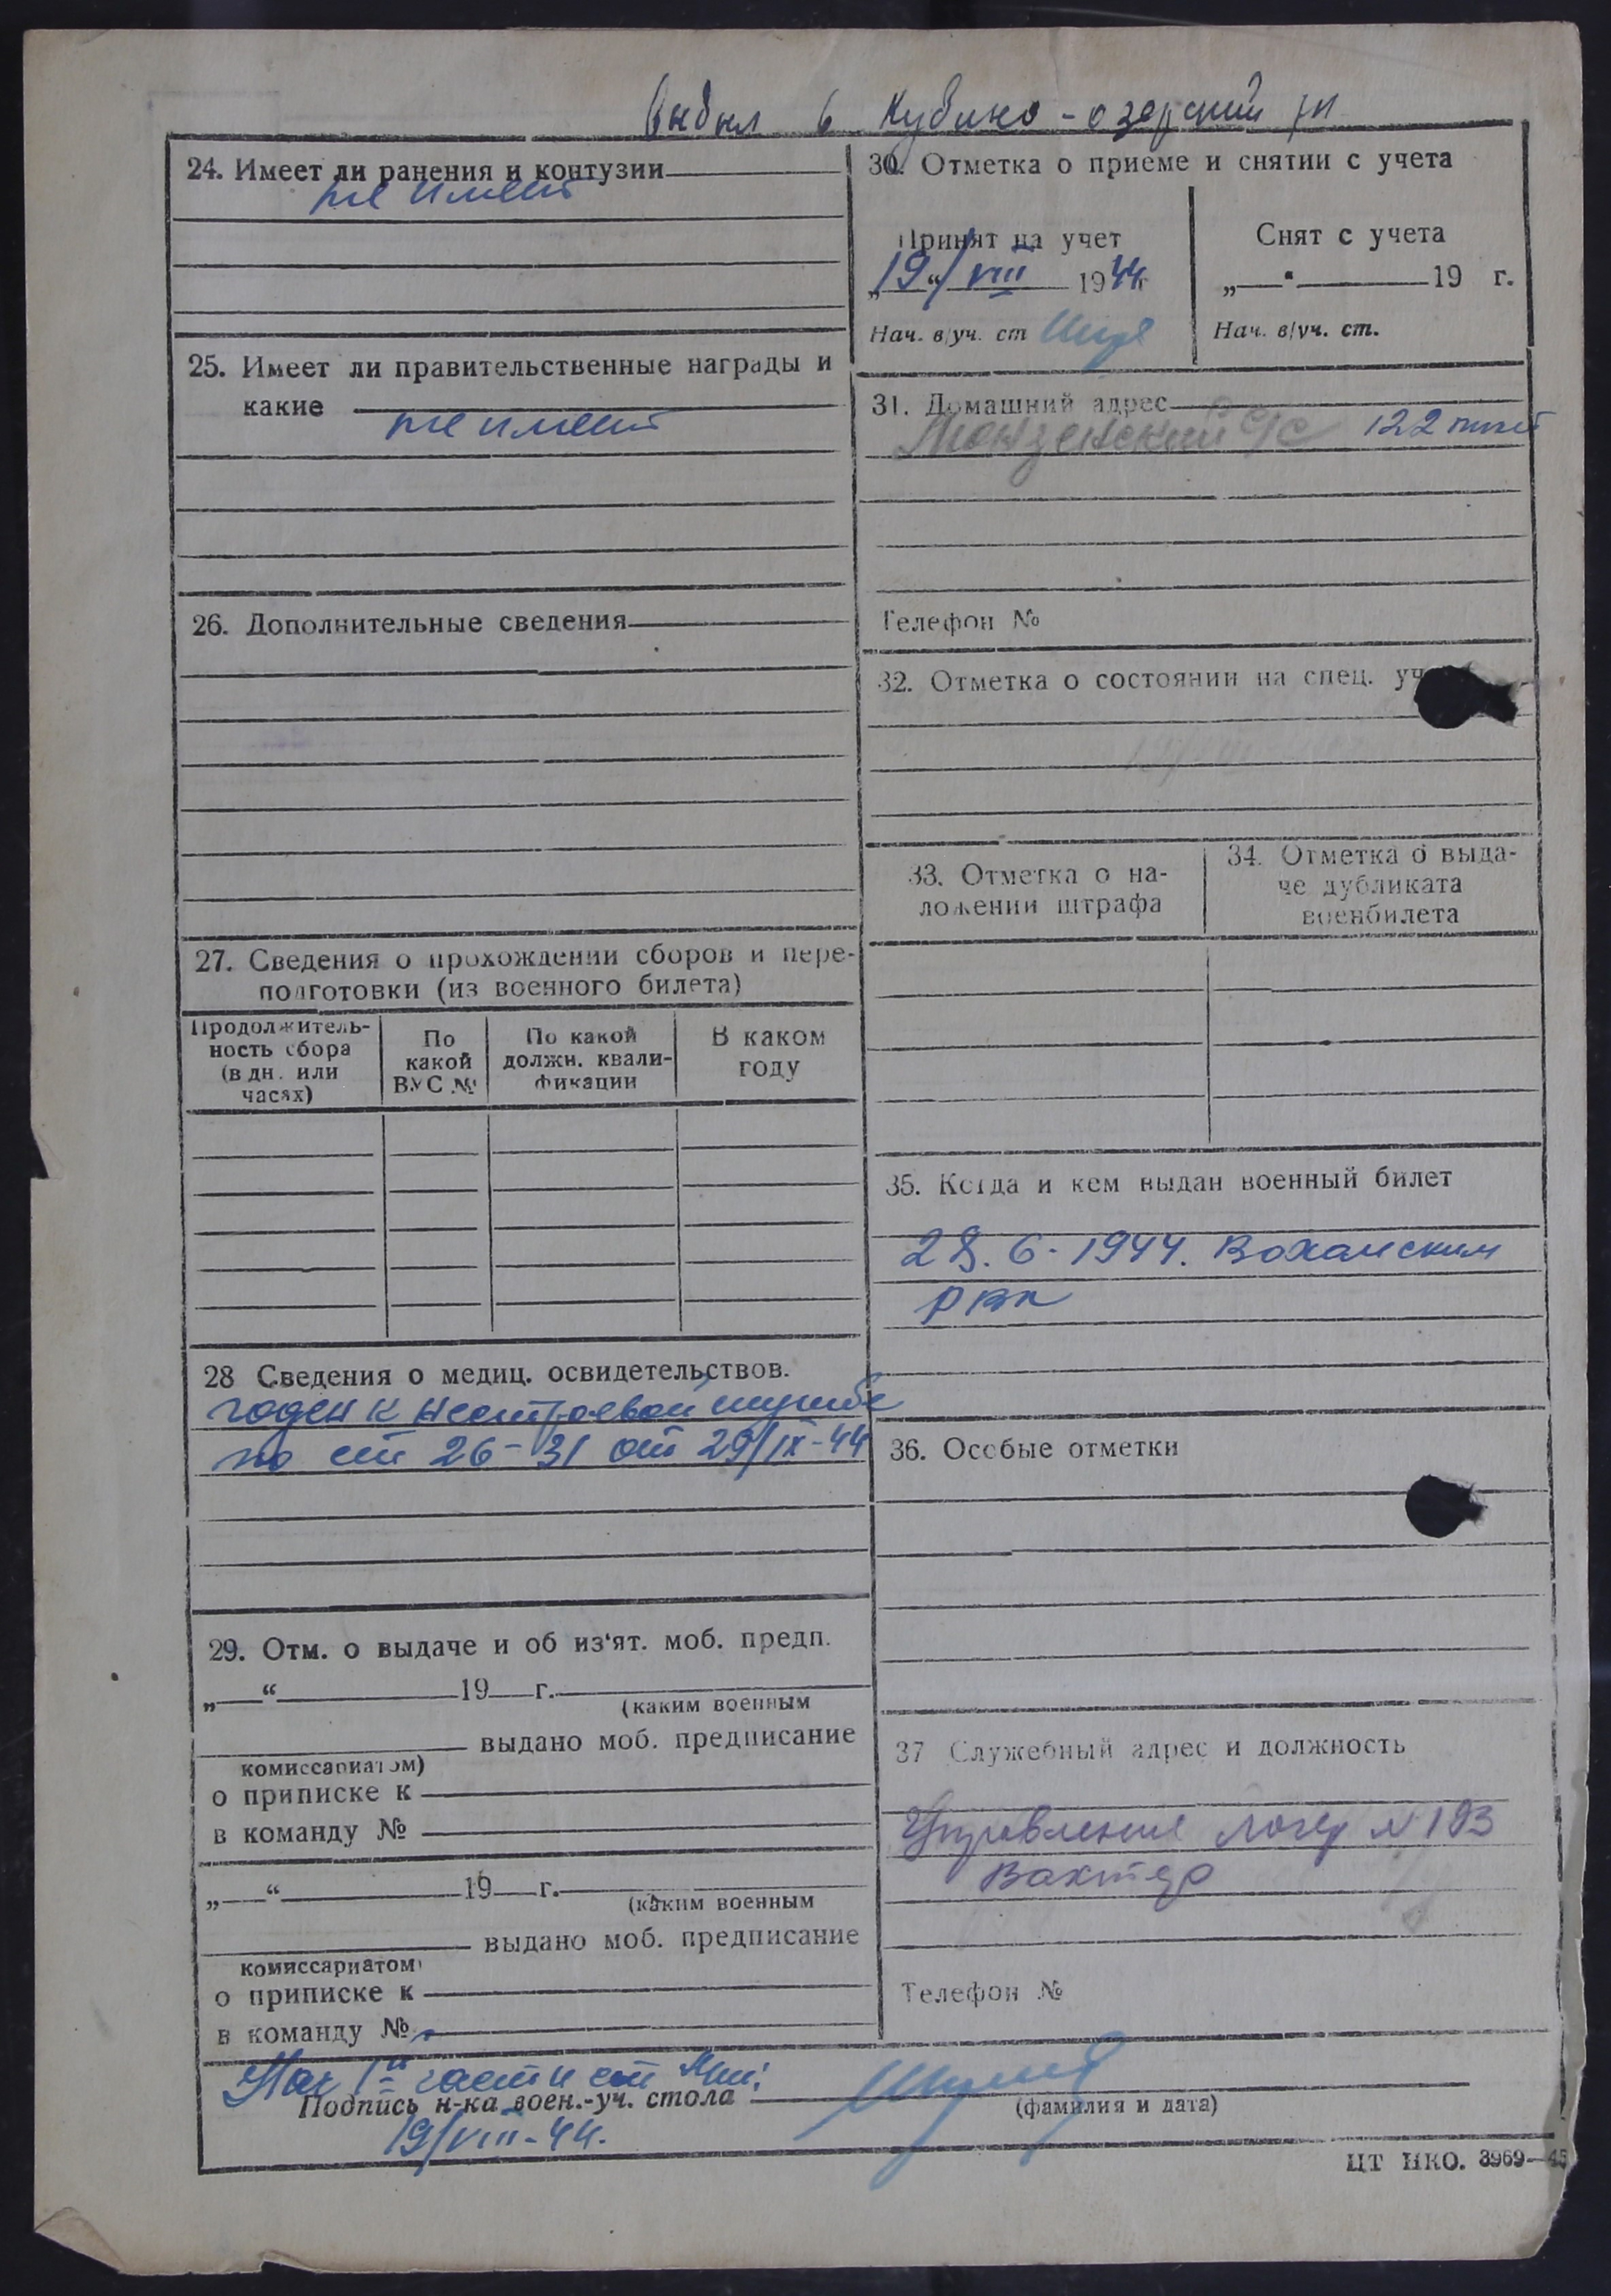 выбыл в Кубино-озерский рн
24. Имеет ли ранения и контузии
не имеет
25. Имеет ли правительственные награды и
какие
не имеет
26. Дополнительные сведения
27. Сведения о прохождении сборов и пере-
подготовки (из военного билета)
Продолжитель-
ность сбора
(в дн. или
часах)
По
какой
ВУС №
По какой
должн. квали-
фикации
В каком
году
28 Сведения о медиц. освидетельствов.
годен к нестроевой службе
по ст 26-31 от 29/IX-44
29. Отм. о выдаче и об из'ят. моб. предп.
„ “ 19 г.
(каким военным
выдано моб. предписание
комиссариатом)
о приписке к
в команду №
„ “ 19 г.
(каким военным
выдано моб. предписание
комиссариатом)
о приписке к
в команду №
30. Отметка о приеме и снятии с учета
Принят на учет
„19“/VIII 1944г
Нач. в/уч. ст
Снят с учета
„ “ 19 г.
Нач. в/уч. ст.
31. Домашний адрес
Монзенский с/с 122
Телефон №
32. Отметка о состоянии на спец.
33. Отметка о на-
ложении штрафа
34. Отметка о выда-
че дубликата
военбилета
35. Когда и кем выдан военный билет
28.6-1944. Вохомским
РВК
36. Особые отметки
37 Служебный адрес и должность
Управление лагер №193
Вахтер
Телефон №
Нач 1й части
Подпись н-ка воен.-уч. стола
(фамилия и дата)
19/VIII-44.
ЦТ НКО. 3969—45